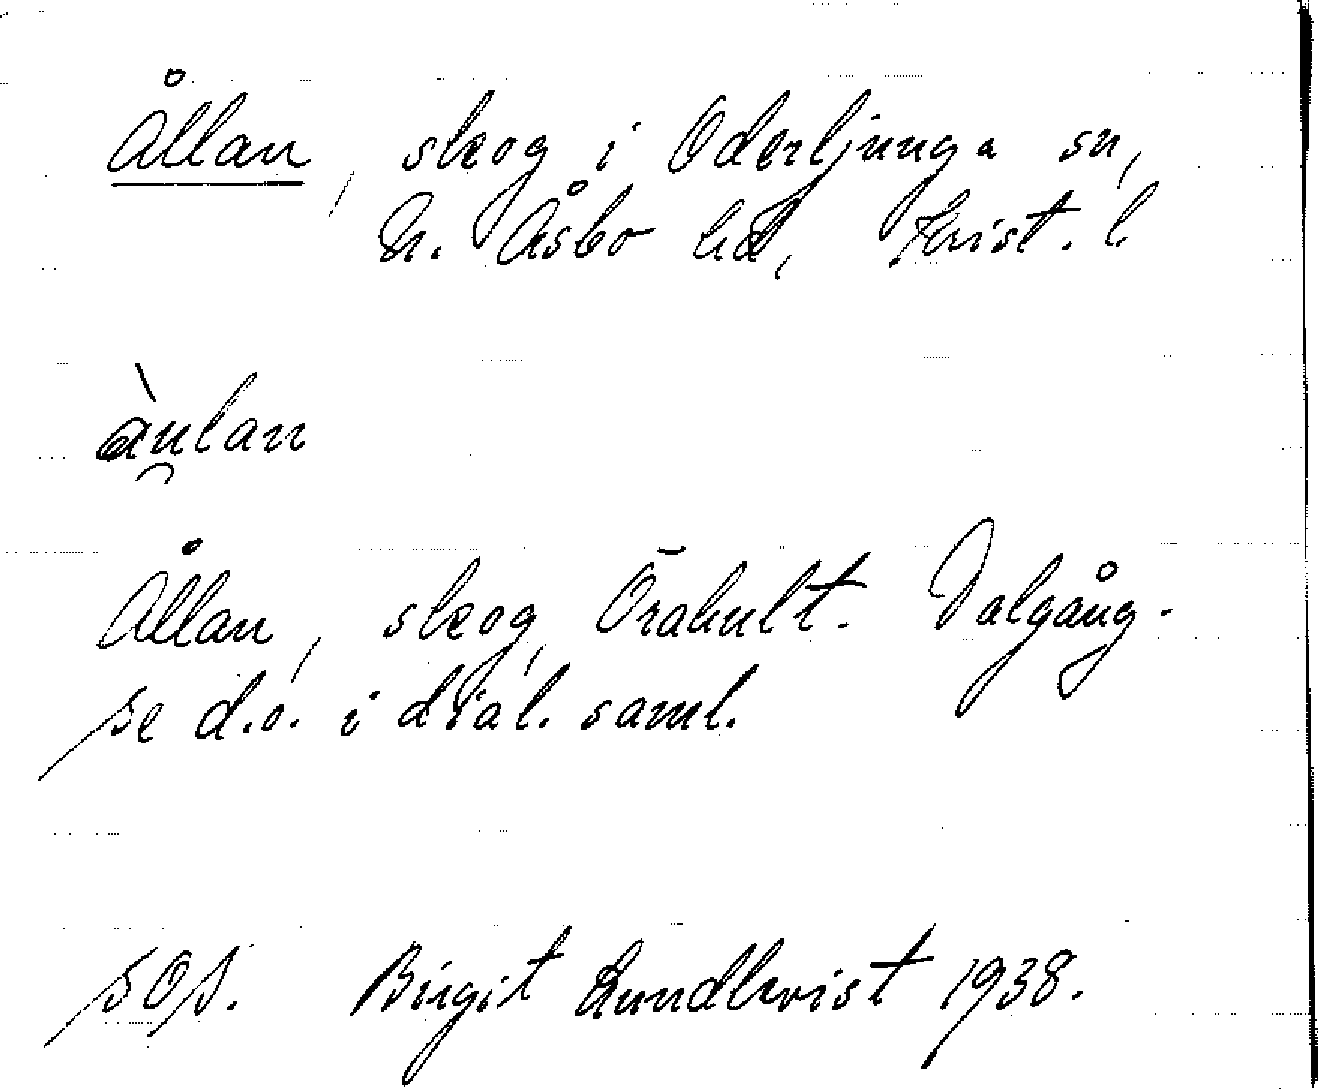 Ållan, skog i Oderljunga sn,
N. Åsbo hd, Krist. l
Ållan, skog, Örahult. Dalgång.
se d.o. i dial. saml.
SOS. Birgit Lundkvist 1938.